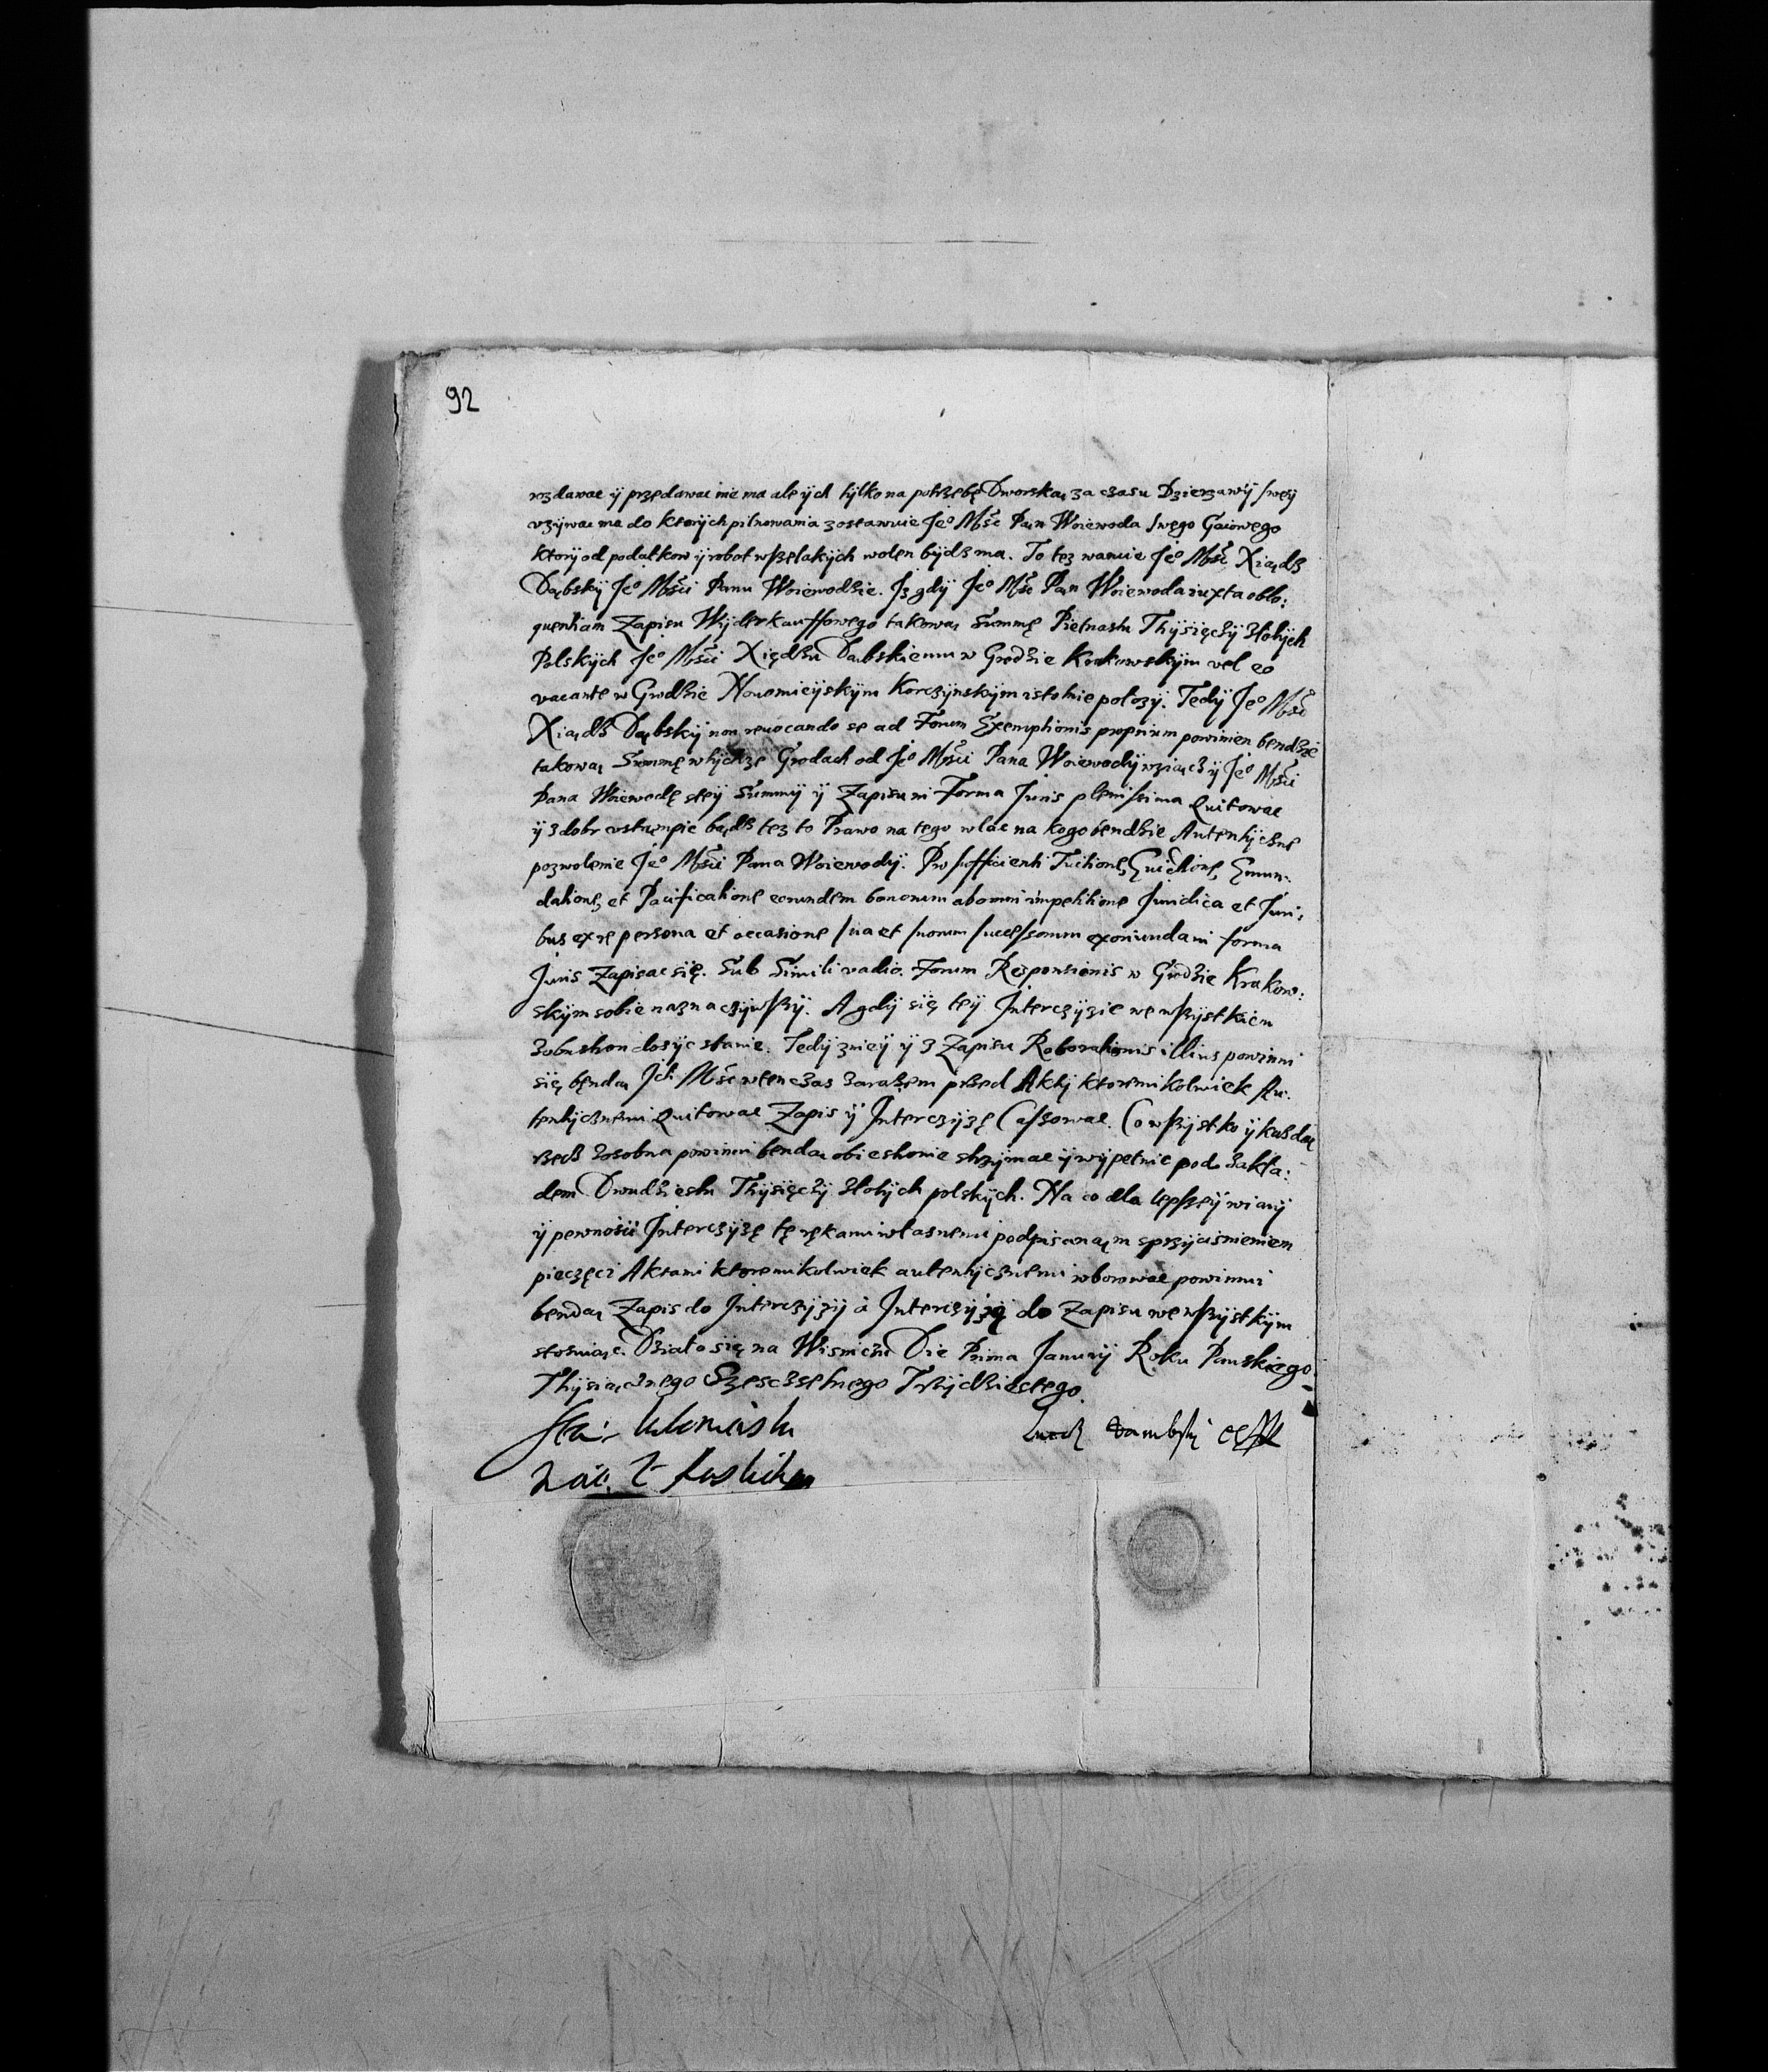 92
rozdawac ÿ przedawac nie ma ale ÿch tÿlko na potrzebę Dworską za czasu Dzierzawÿ swey
vzÿwac ma do ktorÿch pilnowania zostawuie Je° Mśc Pan Woiewoda swego Gaiowego
ktorÿ od podatkow ÿ robot wszelakÿch wolen bÿdz ma. To tez waruie Je° Mśc Xiądz
Dąbskÿ Je° Mśći Panu Woiewodzie. Jz gdÿ Je° Mśc Pan Woiewoda iuxta oblo:
quentiam Zapisu Wÿderkauffowego takową Summę Pietnastu Thÿsięcÿ Złotÿch
Polskÿch Je° Mśći Xiędzu Dąbskiemu w Grodzie Krakowskÿm vel eo
vacante w Grodzie Nouomieÿskÿm Korczÿnskÿm istotnie połozÿ. Tedÿ Je° Mśc
Xiądz Dąbskÿ non reuocando se ad Forum Exemptionis proprium powinien bendzie
takową Summę w tÿchze Grodach od Je° Mśći Pana Woiewodÿ wziącz ÿ Je° Mśći
Pana Woiewodę s teÿ Summÿ ÿ Zapisu in Forma Juris plenissima Quitowac
ÿ z dobr vstąmpic bądz tez to Prawo na tego wlac na kogo bendzie Autentÿczne
pozwolenie Je° Mśći Pana Woiewodÿ. Pro sufficienti Tuitione, Euictione, Emun:
datione, et Pacificatione eorundem bonorum ab omni impetitione Juridica et Juri:
bus ex re persona et occasione sua et suorum successorum exoriunda in forma
Juris Zapisac się. Sub Simili vadio. Forum Responsionis w Grodzie Krakow:
skÿm sobie naznaczÿwszÿ. A gdÿ się teÿ Jnterczÿzie we wszÿstkiem
z obu stron dosÿc stanie. Tedÿ z nieÿ ÿ z Zapisu Roborationis illius powinni
się bendą Jch Mśc wten czas zarazem przed Aktÿ ktoremikolwiek Au:
tentÿcznemi Quitowac Zapis ÿ Jnterczÿzę Cassowac. Co wszÿstko ÿ kazdą
rzecz zosobna powinni bendą obie stronie strzÿmac ÿ wÿpełnic pod zakła:
dem Dwudziestu Thÿsięcÿ złotÿch polskÿch. Na co dla lepszeÿ wiarÿ
ÿ pewnośći Jnterczÿzę tę rękami własnemi podpisaną s przÿcisnieniem
pieczęci Aktami ktoremikolwiek autentÿcznemi roborowac powinni
bendą Zapis do Jnterczÿzÿ a Jnterczÿzę do Zapisu we wszÿstkÿm
stosuiąc. Działo się na Wisniczu Die Prima Januarÿ Roku Panskiego
Thÿsiącznego Szescsetnego Trzÿdziestego.